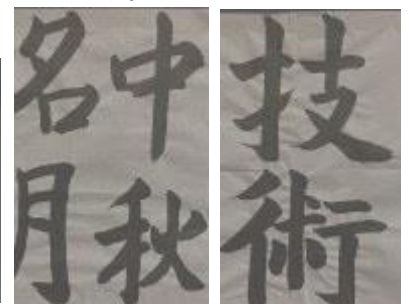 中秋
名月
技術